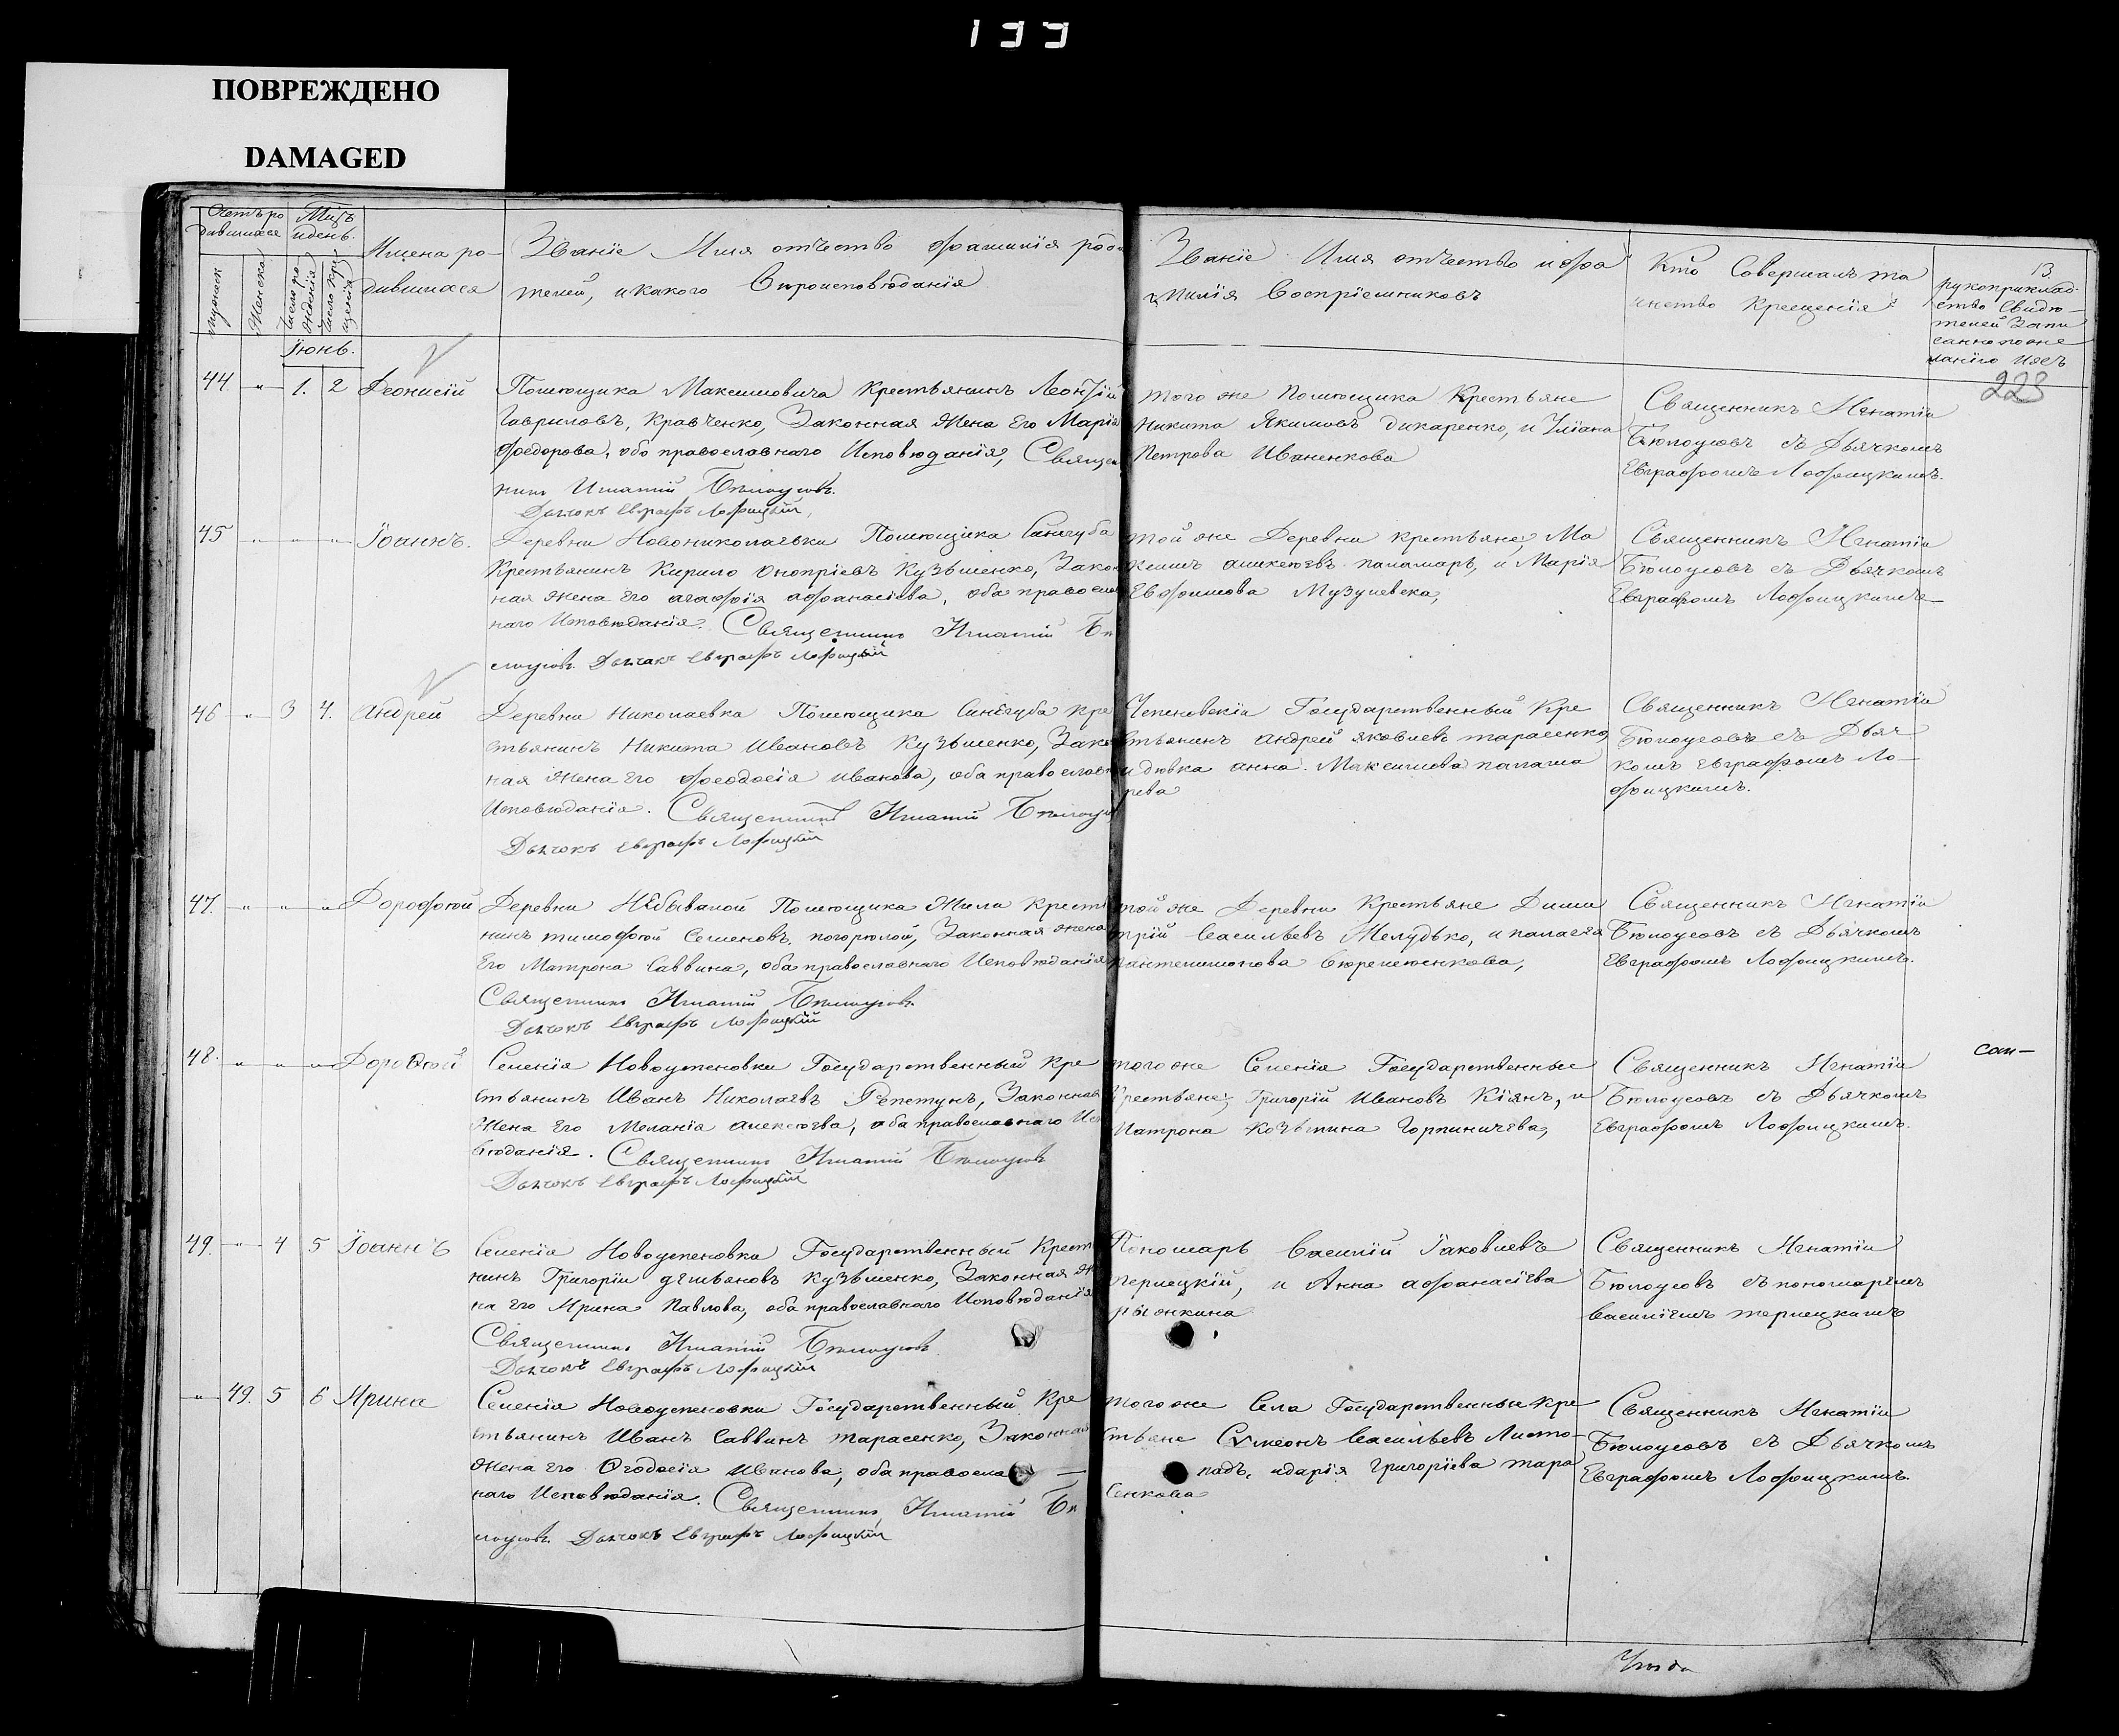 133
ПОВРЕЖДЕНО
DAMAGED
Счетъ ро
дившихся
Мцъ
и день.
Имена ро-
дившихся
Званіе Имя отчество фамилія роди
телей, и какого Вѣроисповѣданія
Мужеск
Женска
Число ро
жденія
Число кре
щенія
Іюнь.
Званіе Имя отчество и фа
милія Воспріемниковъ
Кто Совершалъ та
инство Крещенія
13
рукоприклад
ство Свидѣ-
телей Запи
санно по же
ланію ихъ
223
44. " 1. 2 Деонисій
Помѣщика Максимовича Крестьянинъ Леонтій
Гавриловъ, Кравченко, Законная Жена Его Марія
Федорова, обо православнаго Исповѣданія, Священ
никъ Игнатій Бѣлоусовъ.
Дьячокъ Евграфъ Лофицкій,
того же Помѣщика Крестьяне
Никита Якимовъ Дикаренко, и Уліана
Петрова Иваненкова
Священникъ Игнатій
Бѣлоусовъ съ Дьячкомъ
Евграфомъ Лофицкимъ.
45 " " " Іоаннъ.
Деревни Новониколаевки Помѣщика Синегуба
Крестьянинъ Кирило Оноприевъ Кузьменко, Закон
ная Жена его Агафія Афанасіева, оба правосла
наго Исповѣданія. Священникъ Игнатій Бѣ
лоусовъ. Дьячокъ Евграфъ Лофицкій
той же Деревни Крестьяне, Ма
ксимъ Алиексѣевъ паламарь, и Марія
Евфимова Музулевска,
Священникъ Игнатій
Бѣлоусовъ съ Дьячкомъ
Евграфомъ Лофицкимъ
46 " 3 4. Андрей
Деревни Николаевка Помѣщика Синегуба Кре
стьянинъ Никита Ивановъ Кузьменко, Закон
ная Жена Его Феодосія Иванова, оба православн
Исповѣданія. Священникъ Игнатій Бѣлоус
Дьячокъ Евграфъ Лофицкій
Государственный Кре
стьянинъ Андрей Яковлевъ Тарасенко,
и дѣвка Анна Максимова палама
рева
Священникъ Игнатій
Бѣлоусовъ съ Дьяч
комъ Евграфомъ Ло-
фицкимъ.
47. " " " Дорофѣй
Деревни Небывалой Помѣщика Жила Крестья
нинъ Тимофѣй Семеновъ, погорѣлой, Законная жена
Его Матрона Саввина, оба православнаго Исповѣданія
Священникъ Игнатій Бѣлоусовъ.
Дьячокъ Евграфъ Лофицкій
той же Деревни Крестьяне Дими
трій Васильевъ Желудько, и палагѣя
пантелимонова
Священникъ Игнатій
Бѣлоусовъ съ Дьячкомъ
Евграфомъ Лофицкимъ.
48. " " " Дороѳѣй
Селенія Новоуспеновки Государственный Кре
стьянинъ Иванъ Николаевъ Репетунъ, Законная
Жена Его Меланія Алексѣева, оба православнаго Исп
вѣданія. Священникъ Игнатій Бѣлоусовъ
Дьячокъ Евграфъ Лофицкій
того же Селенія Государственные
Крестьяне, Григорій Ивановъ Кіянъ, и
Матрона Козьмина Горпиничева,
Священникъ Игнатій
Бѣлоусовъ съ Дьячкомъ
Евграфомъ Лофицкимъ.
49. " 4 5 Іоаннъ
Селенія Новоуспеновка Государственный Крестья
нинъ Григорій Демьяновъ Кузьменко, Законная Же
на Его Ирина Павлова, оба православнаго Исповѣданія
Священникъ Игнатій Бѣлоусовъ
Дьячокъ Евграфъ Лофицкій
Пономарь Василій Іаковлевъ
Терлецкій, и Анна Афанасіева
Священникъ Игнатій
Бѣлоусовъ съ пономаремъ
Василіемъ Терлецкимъ
" 49. 5 6 Ирина
Селенія Новоуспеновки Государственный Кре
стьянинъ Иванъ Саввинъ Тарасенко, Законная
Жена его Ѳеодосія Иванова, оба правосла
наго Исповѣданія. Священникъ Игнатій Бѣ
лоусовъ. Дьячокъ Евграфъ Лофицкій
того же Села Государственные Кре
стьяне Сумеонъ Васильевъ Листо-
падъ, и Дарія Григоріева Тара
сенкова
Священникъ Игнатій
Бѣлоусовъ съ Дьячкомъ
Евграфомъ Лофицкимъ.